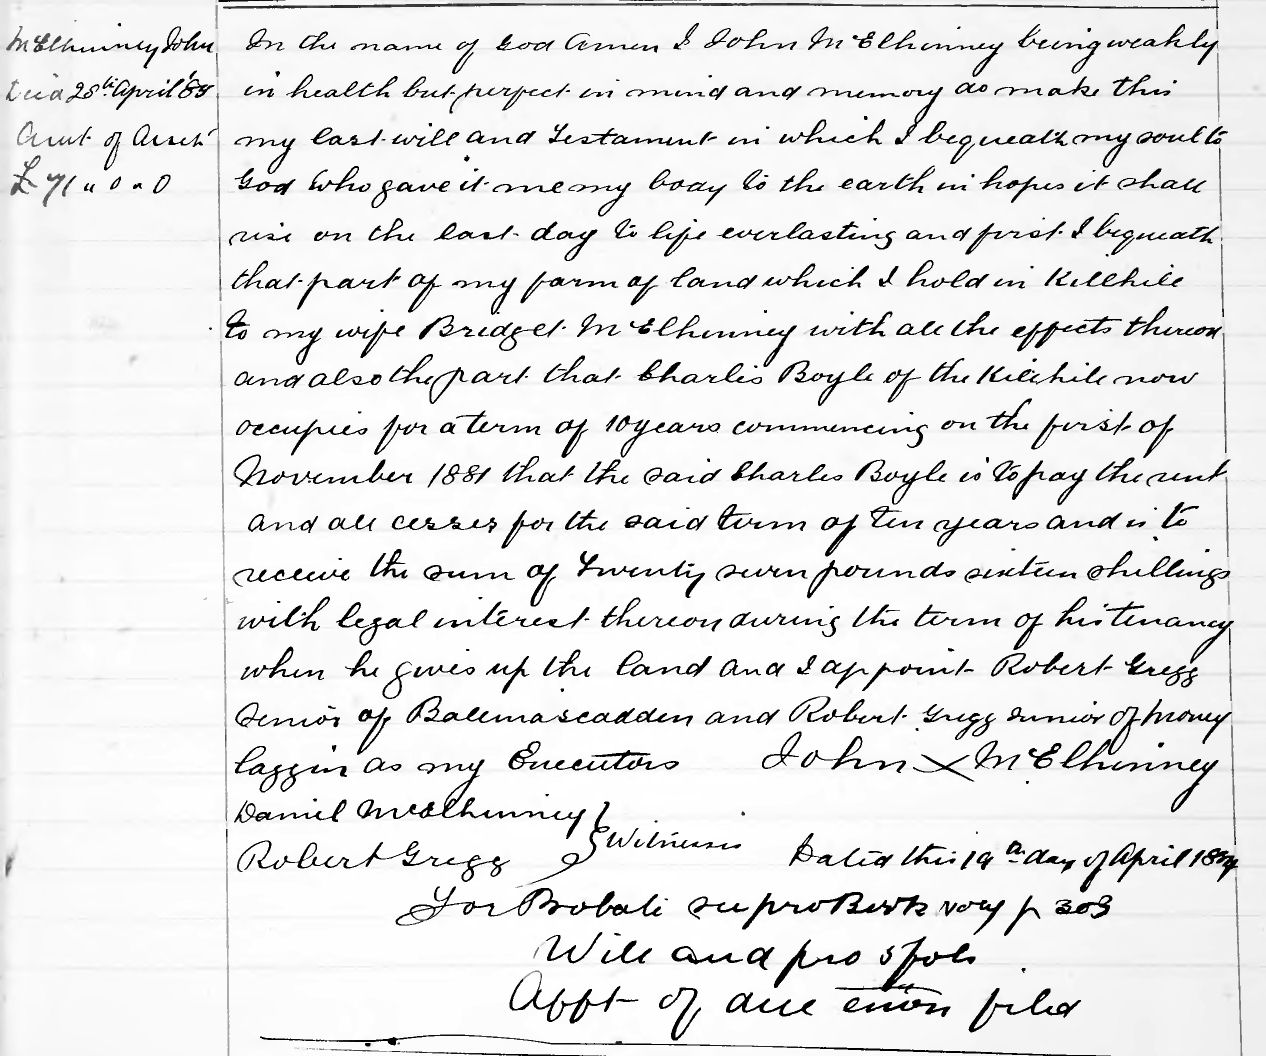 McElhinney John
Died 28th April '88
Amt of Assets
£71 " 0 " 0
In the name of God Amen I John McElhinney being weakly
in health but perfect in mind and memory do make this
my last will and Testament in which I bequeath my soul to
God who gave it me my body to the earth in hopes it shall
rise on the last day to life everlasting and first I bequeath
that part of my farm of land which I hold in Killhile
to my wife Bridget McElhinney with all the effects thereon
and also the part that Charles Boyle of the Kilehile now
occupies for a term of 10 years commencing on the first of
November 1881 that the said Charles Boyle is to pay the rent
and all cesses for the said term of ten years and is to
receive the sum of Twenty seven pounds sixteen shillings
with legal interest thereon during the term of his tenancy
when he gives up the land and I appoint Robert Gregg
Senior of Balemascadden and Robert Gregg Junior of Money
laggin as my Executors John X McElhinney
Daniel McElhinney }
Robert Gregg } Witnesses Dated this 19th day of April
For Probate see pro Book p 303
Will and pro 5 fols
Afft of due exion filed